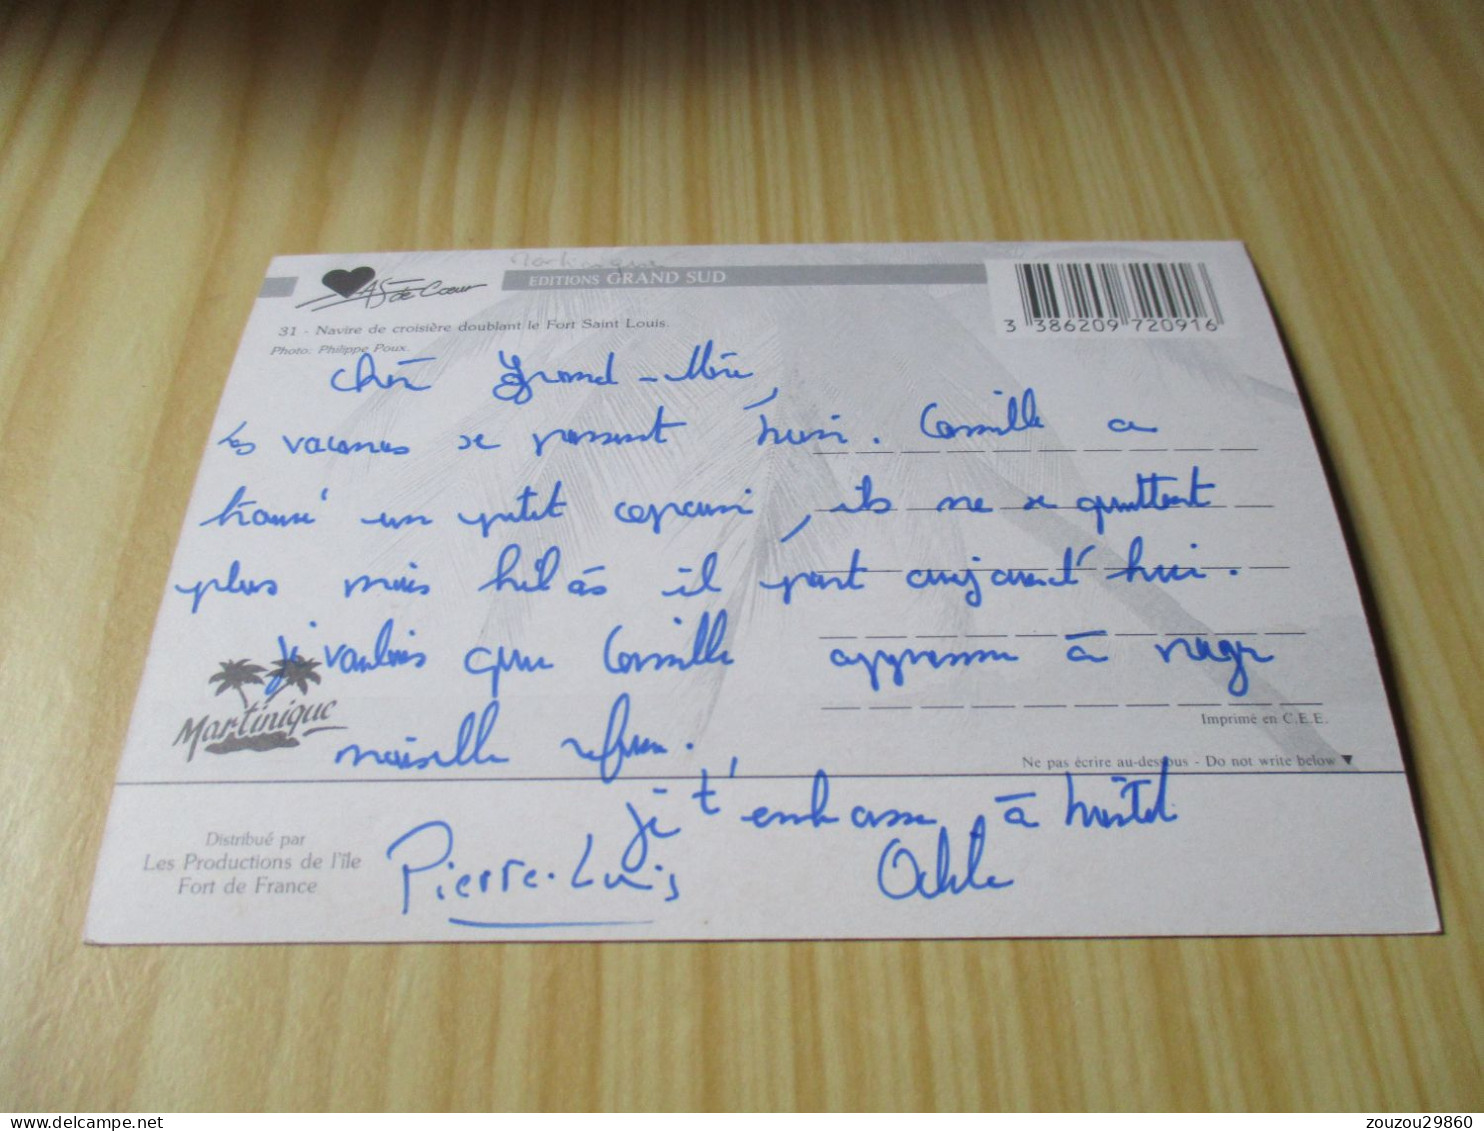 Martinique
As de Cœur
EDITIONS GRAND SUD
31 - Navire de croisière doublant le Fort Saint Louis.
Photo: Philippe Poux.
3 386209 720916
Chère Grand-Mère,
les vacances se passent bien. Camille a
trouvé un petit copain, ils ne se quittent
plus mais hélàs il part aujourd'hui.
je voulais que Camille apprenne à nager
Martinique
mais elle refuse.
Imprimé en C.E.E.
Ne pas écrire au-dessous - Do not write below ▼
je t'embrasse à bientôt
Distribué par
Les Productions de l'île
Fort de France
Pierre-Louis
Odile
www.delcampe.net
zouzou29860